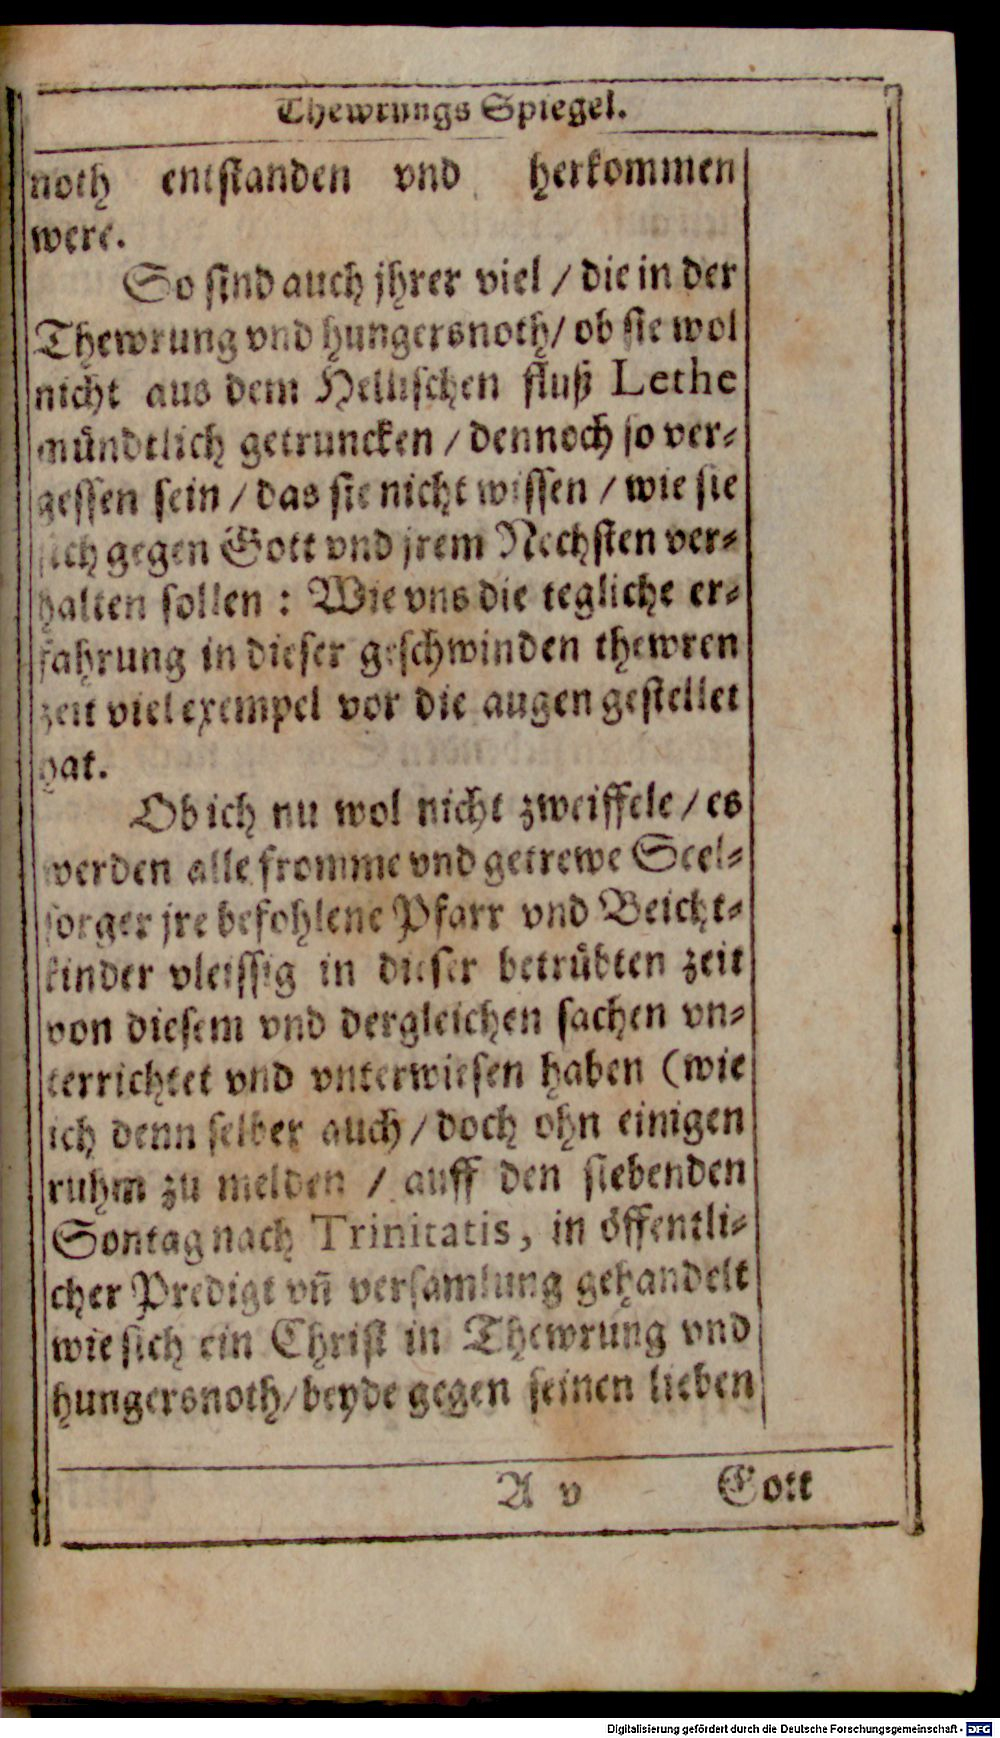 Thewrungs Spiegel.
noth entstanden vnd herkommen
were.
So sind auch jhrer viel / die in der
Thewrung vnd hungersnoth / ob sie wol
nicht aus dem Hellischen fluß Lethe
mündtlich getruncken / dennoch so ver-
gessen sein / das sie nicht wissen / wie sie
sich gegen Gott vnd jrem Nechsten ver-
halten sollen : Wie vns die tegliche er-
fahrung in dieser geschwinden thewren
zeit viel exempel vor die augen gestellet
hat.
Ob ich nu wol nicht zweiffele / es
werden alle fromme vnd getrewe Seel-
sorger jre befohlene Pfarr vnd Beicht-
kinder vleissig in dieser betrübten zeit
von diesem vnd dergleichen sachen vn-
terrichtet vnd vnterwiesen haben (wie
ich denn selber auch / doch ohn einigen
ruhm zu melden / auff den siebenden
Sontag nach Trinitatis, in öffentli-
cher Predigt vñ versamlung gehandelt
wie sich ein Christ in Thewrung vnd
hungersnoth / beyde gegen seinen lieben
A v Gott
Digitalisierung gefördert durch die Deutsche Forschungsgemeinschaft - DFG